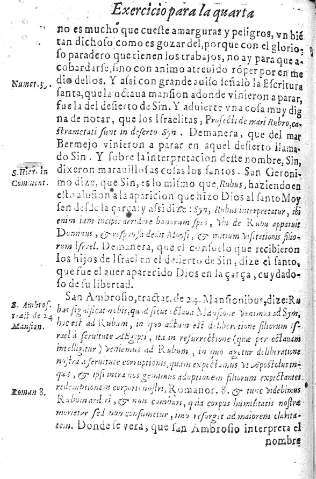 Exercicio para la quarta
no es mucho que cueste amarguras y peligros, vn bié
tan dichoso como es gozar del, porque con el glorio-
so paradero que tienen los trabajos, no ay para que a-
cobardarse, sino con animo atreuido rôper por en me
dio dellos. Y assi con grande auiso señalò la Escritura
Numer. 33.
santa, que la octaua mansion adonde vinieron a parar,
fue la del desierto de Sin. Y aduierte vna cosa muy dig
na de notar, que los Israelitas, Profecti de mari Rubro, ca-
strametati sunt in deserto Syn. Demanera, que del mar
Bermejo vinieron a parar en aquel desierto llama-
do Sin. Y sobre la interpretacion deste nombre, Sin,
S. Hier. in
Comment.
dixeron marauillosas cosas los santos. San Geroni-
mo dize, que Sin, es lo mismo que, Rubus, haziendo en
esto alusion a la aparicion que hizo Dios al santo Moy
sen desde la çarça, y assi dize: Syn, Rubus interpretatur, ibi
enim iam incipit arridere bonorum spes, vbi de Rubo apparuit
Dominus, & responsa dedit Moysi, & mutuum visitationis filio-
rum Israel. Demanera, que el consuelo que recibieron
los hijos de Israel en el desierto de Sin, dize el santo,
que fue el auer aparecido Dios en la çarça, cuydado-
so de su libertad.
S. Ambros.
tract. de 24
Mansion.
San Ambrosio, tractat. de 24. Mansionibus, dize: Ru
bus significat nobis, quod situ octaua Mansione venimus ad Syn,
hoc est ad Rubum, in quo actum est de liberatione filiorum Is-
rael à seruitute Aegypti, ita in resurrectione (quae per octauam
intelligitur) veniemus ad Rubum, in quo agetur de liberatione
nostra à seruitute corruptionis, quam expectamus vt Apostolus in-
quit, & ipsi intra nos gemimus adoptionem filiorum expectantes
Roman 8.
redemptionem corporis nostri, Romanor. 8. & tunc videbimus
Rubum ardere, & non comburi, quia corpus humilitatis nostrae
moretur sed non consumetur, imo resurget ad maiorem clarita-
tem. Donde se vera, que san Ambrosio interpreta el
nombre